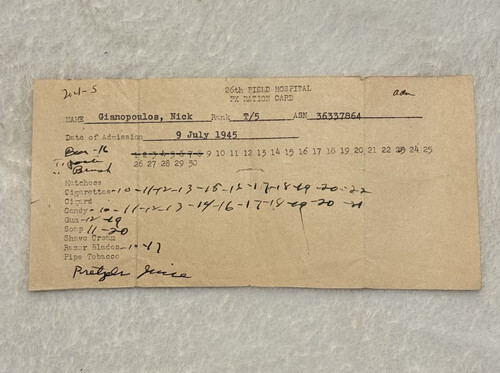 26th FIELD HOSPITAL
PX RATION CARD
NAME Gianopoulos, Nick Rank T/5 ASN 36337864
Date of Admission 9 July 1945
1 2 3 4 5 6 7 8 9 10 11 12 13 14 15 16 17 18 19 20 21 22 23 24 25
26 27 28 29 30
Brush
Matches
Cigarettes-10-11-12-13-15-12-17-18-19-20-22
Cigars
Candy-10-11-12-13-14-16-17-18-19-20-21
Gum-12-19
Soap 11-20
Shave Cream
Razor Blades-10-17
Pipe Tobacco
Pretzels Juice